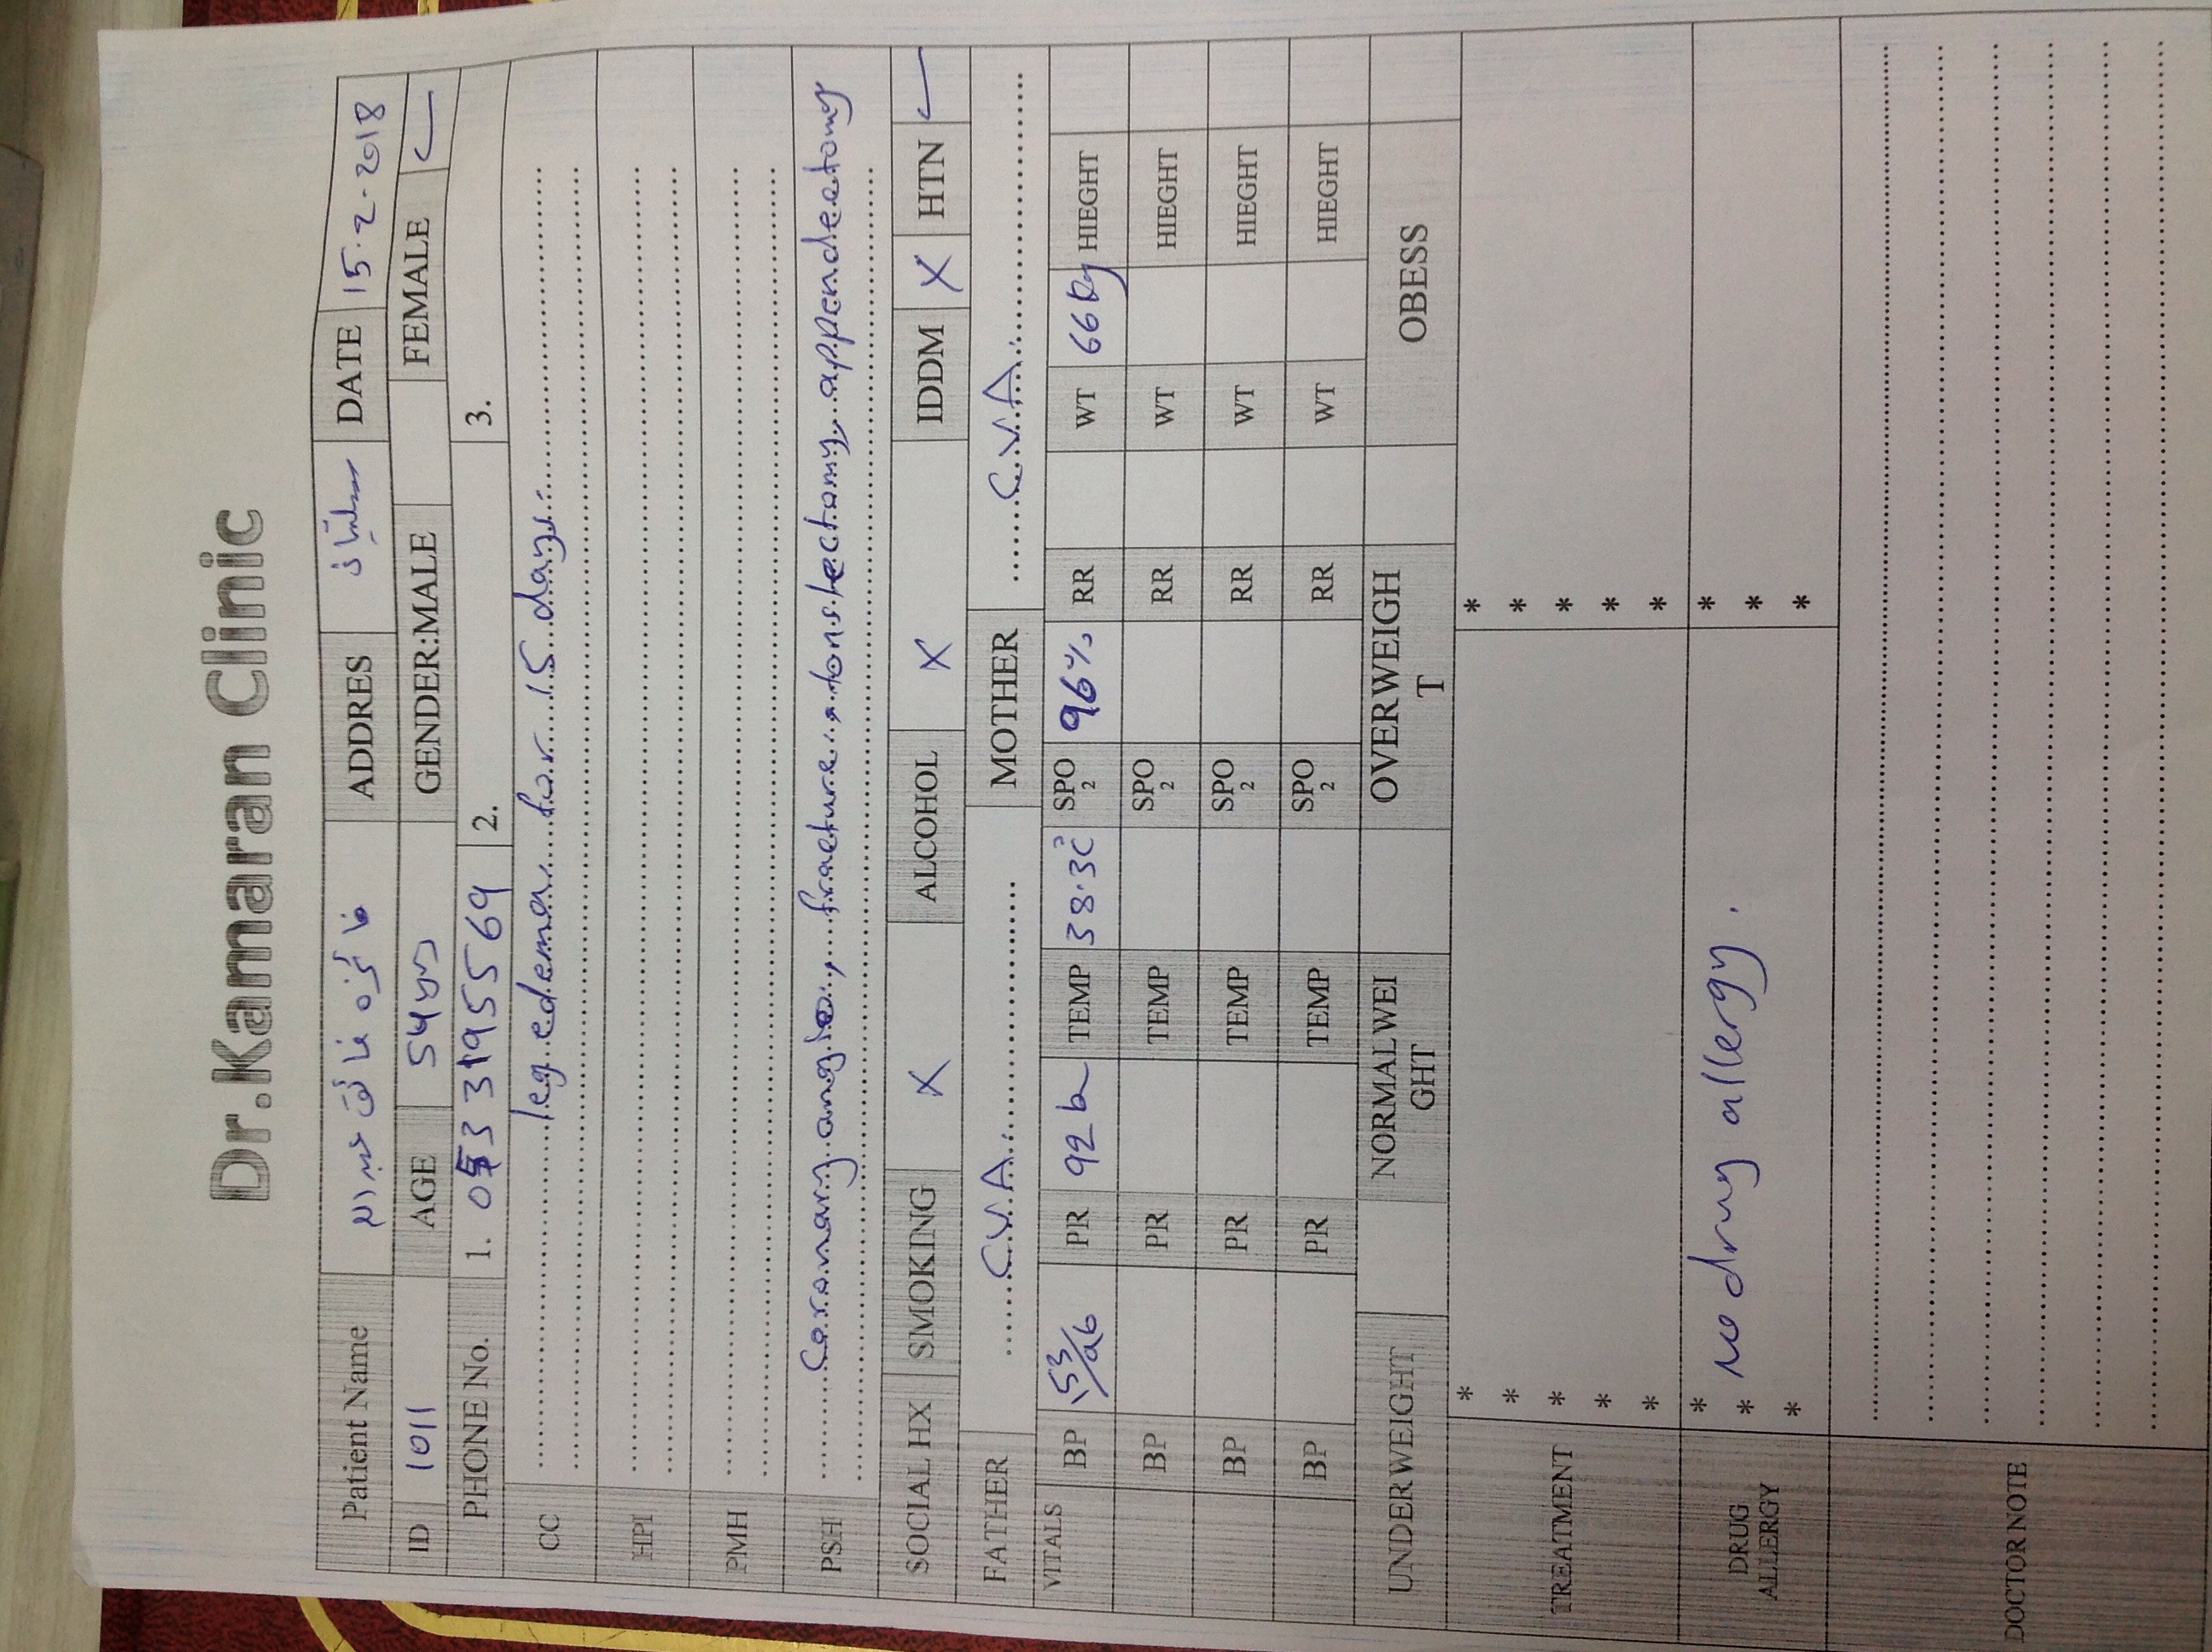 Dr.Kamaran Clinic
Patient Name ADDRES DATE 15-2-2018
ID 1011 AGE 54 yrs GENDER:MALE FEMALE ✓
PHONE No. 1. 0533195569 2. 3.
CC leg edema for 15 days.
HPI
PMH
PSH Coronary angio, fracture, tonslectomy, appendectomy
SOCIAL HX SMOKING X ALCOHOL X IDDM X HTN ✓
FATHER C.V.A. MOTHER C.V.A.
VITALS BP 153/ PR 92 b TEMP 38.3C SPO2 96% RR WT 66 kg HIEGHT
BP PR TEMP SPO2 RR WT HIEGHT
BP PR TEMP SPO2 RR WT HIEGHT
BP PR TEMP SPO2 RR WT HIEGHT
UNDERWEIGHT NORMALWEI OVERWEIGH OBESS
GHT T
TREATMENT * *
* *
* *
* *
* *
DRUG * no drug allergy. *
ALLERGY * *
* *
DOCTOR NOTE